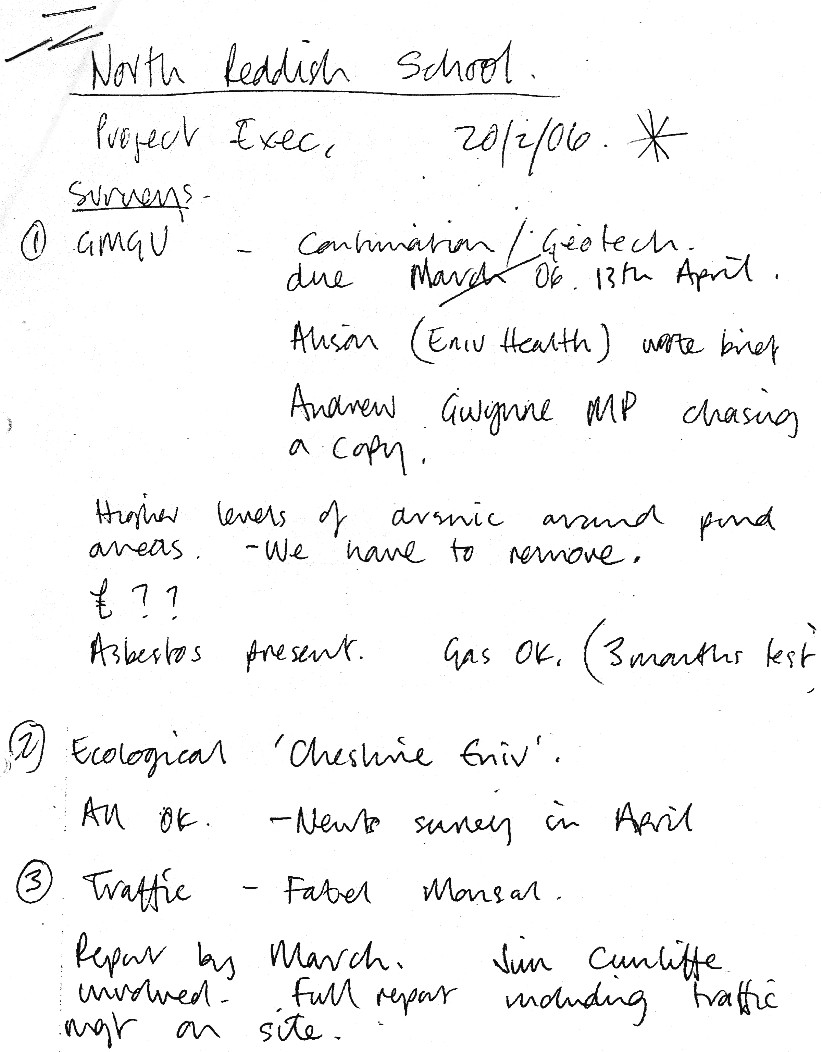 North Reddish School.
Project Exec, 20/2/06. *
Surveys -
① GMGU - Contamination / Geotech.
due March 06. 13th April.
Alison (Eniv Health) wrote brief
Andrew Gwynne MP chasing
a copy.
Higher levels of arsenic around pond
areas. - We have to remove.
£ ? ?
Asbestos present. Gas OK. (3 months test
② Ecological 'Cheshire Eniv'.
All OK. - Newt survey in April
③ Traffic - Faber Maunsal.
Report by March. Jim Cunliffe
involved - Full report including traffic
mgt on site.